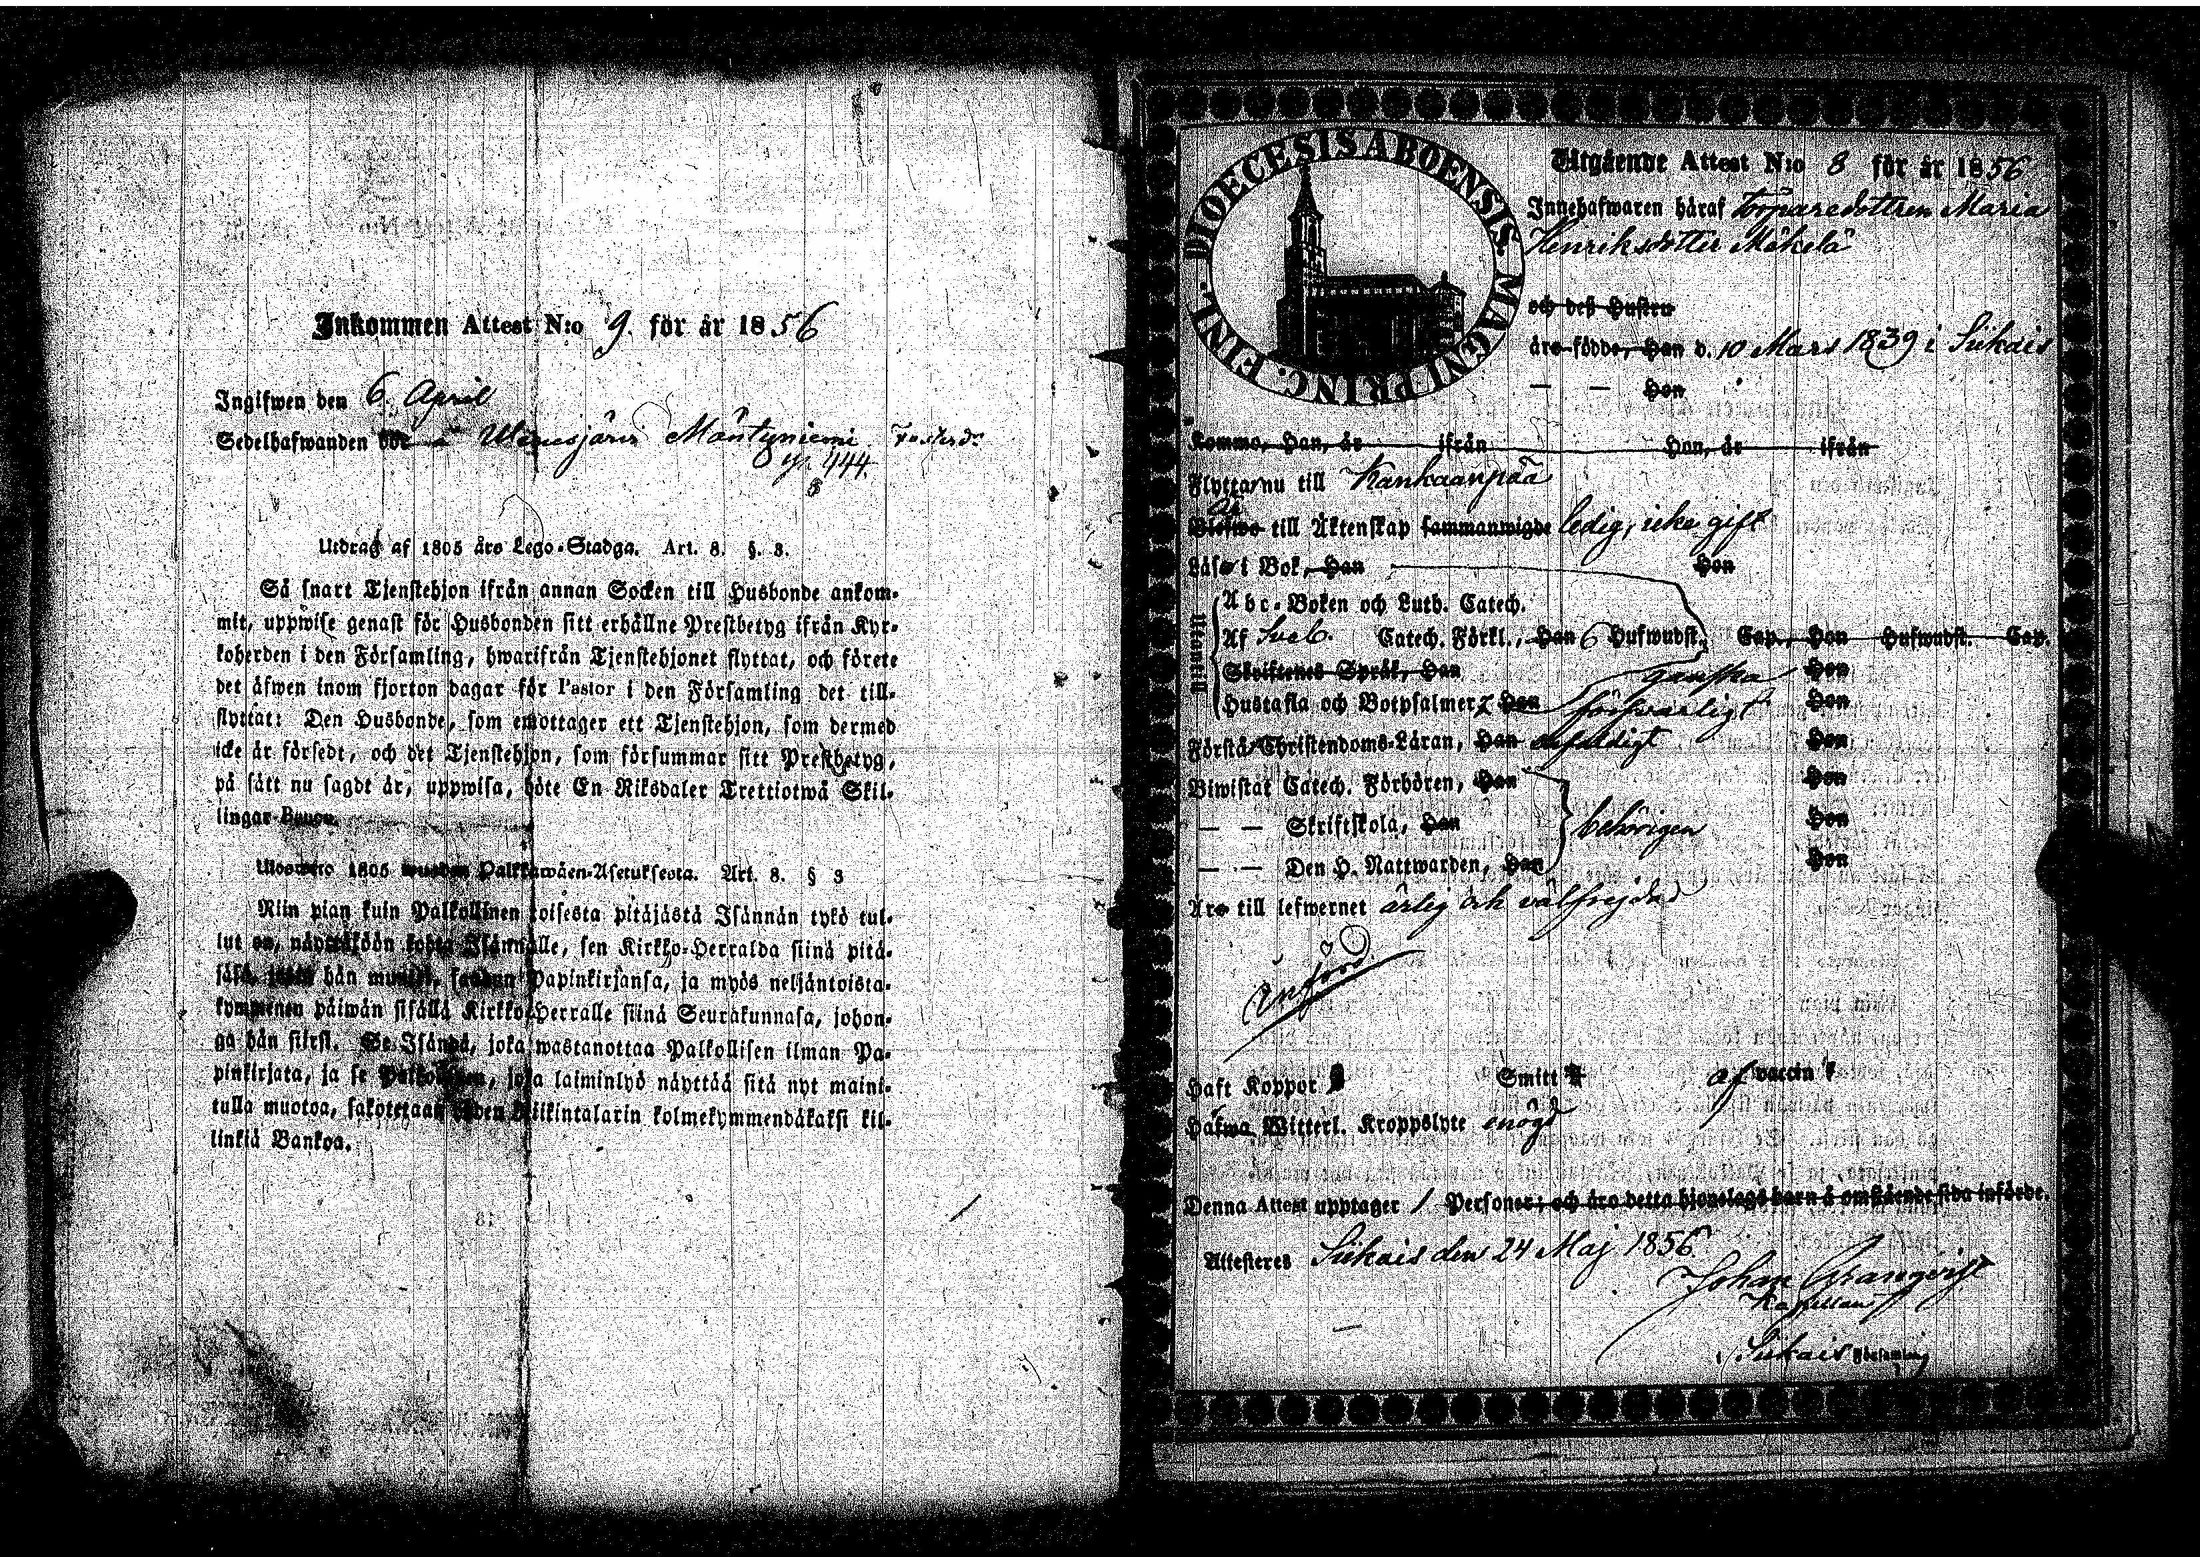 Inkommen Attest N:o 9. för år 1856
Ingifwen den 6. April
Sedelhafwanden Möntyniemi
444
Utdrag af 1805 års Lego-Stadga. Art. 8. §. 3.
Så snart Tjenstehjon ifrån annan Socken till Husbonde ankom-
mit, uppwise genast för Husbonden sitt erhållne Prestbetyg ifrån Kyr-
koherden i den Församling, hwarifrån Tjenstehjonet flyttat, och förete
det äfwen inom fjorton dagar för Pastor i den Församling det till-
flyttat: Den Husbonde, som emottager ett Tjenstehjon, som dermed
icke är försedt, och det Tjenstehjon, som försummar sitt Prestbetyg,
på sätt nu sagdt är, uppwisa, böte En Riksdaler Trettiotwå Skil-
lingar Banco.
1805 Palkkawäen-Asetuksesta. Art. 8. § 3
Niin pian kuin Palkollinen toisesta pitäjästä Isännän tykö tul-
lut on, näyttäköön kohta Isännälle, sen Kirkko-Herralda siinä pitä-
jäsä, hän muutti, saadun Papinkirjansa, ja myös neljäntoista-
kymmenen päiwän sisällä Kirkko-Herralle siinä Seurakunnasa, johon-
ga hän siirsi. Se Isändä, joka wastanottaa Palkollisen ilman Pa-
pinkirjata, ja se Palkollinen, joka laiminlyö näyttää sitä nyt maini-
tulla muotoa, sakotetaan Riikintalarin kolmekymmendäkaksi kil-
linkiä Bankoa.
DIOECESIS ABOENSIS. MAGNI PRINC. FINL.
Utgående Attest N:o 8 för år 1856
Innehafwaren häraf Torparedottren Maria
Henriksdotter Mäkelä
och deß Hustru
äro födde, Han d. 10 Mars 1839 i Siikais
— — Hon
Komme, Han, år ifrån Hon, år ifrån
Flyttar nu till Kankaanpää
Är
Blefwo till Äktenskap sammanwigde ledig, icke gift
Läse i Bok, Han Hon
Utantill
Abc-Boken och Luth. Catech.
Af Sveb. Catech. Förkl., Han 6 Hufwudst. Cap., Hon Hufwudst. Cap.
Skriftenes Språk, Han ganska Hon
Hustafla och Botpsalmer, Han försvarligt Hon
Förstå Christendoms-Läran, Han enfaldigt Hon
Biwistat Catech. Förhören, Han Hon
— — Skriftskola, Han behörigen Hon
— — Den H. Nattwarden, Han Hon
Äro till lefwernet ärlig och välfrejdad
Införd.
Haft Koppor Smitt af vaccin
Hafwa Witterl. Kroppslyte
Denna Attest upptager 1 Personer; och äro detta hjonelags barn å omstående sida införde.
Attesteres Siikais den 24 Maj 1856
Johan Granqvist
Kapellan
i Siikais Församling